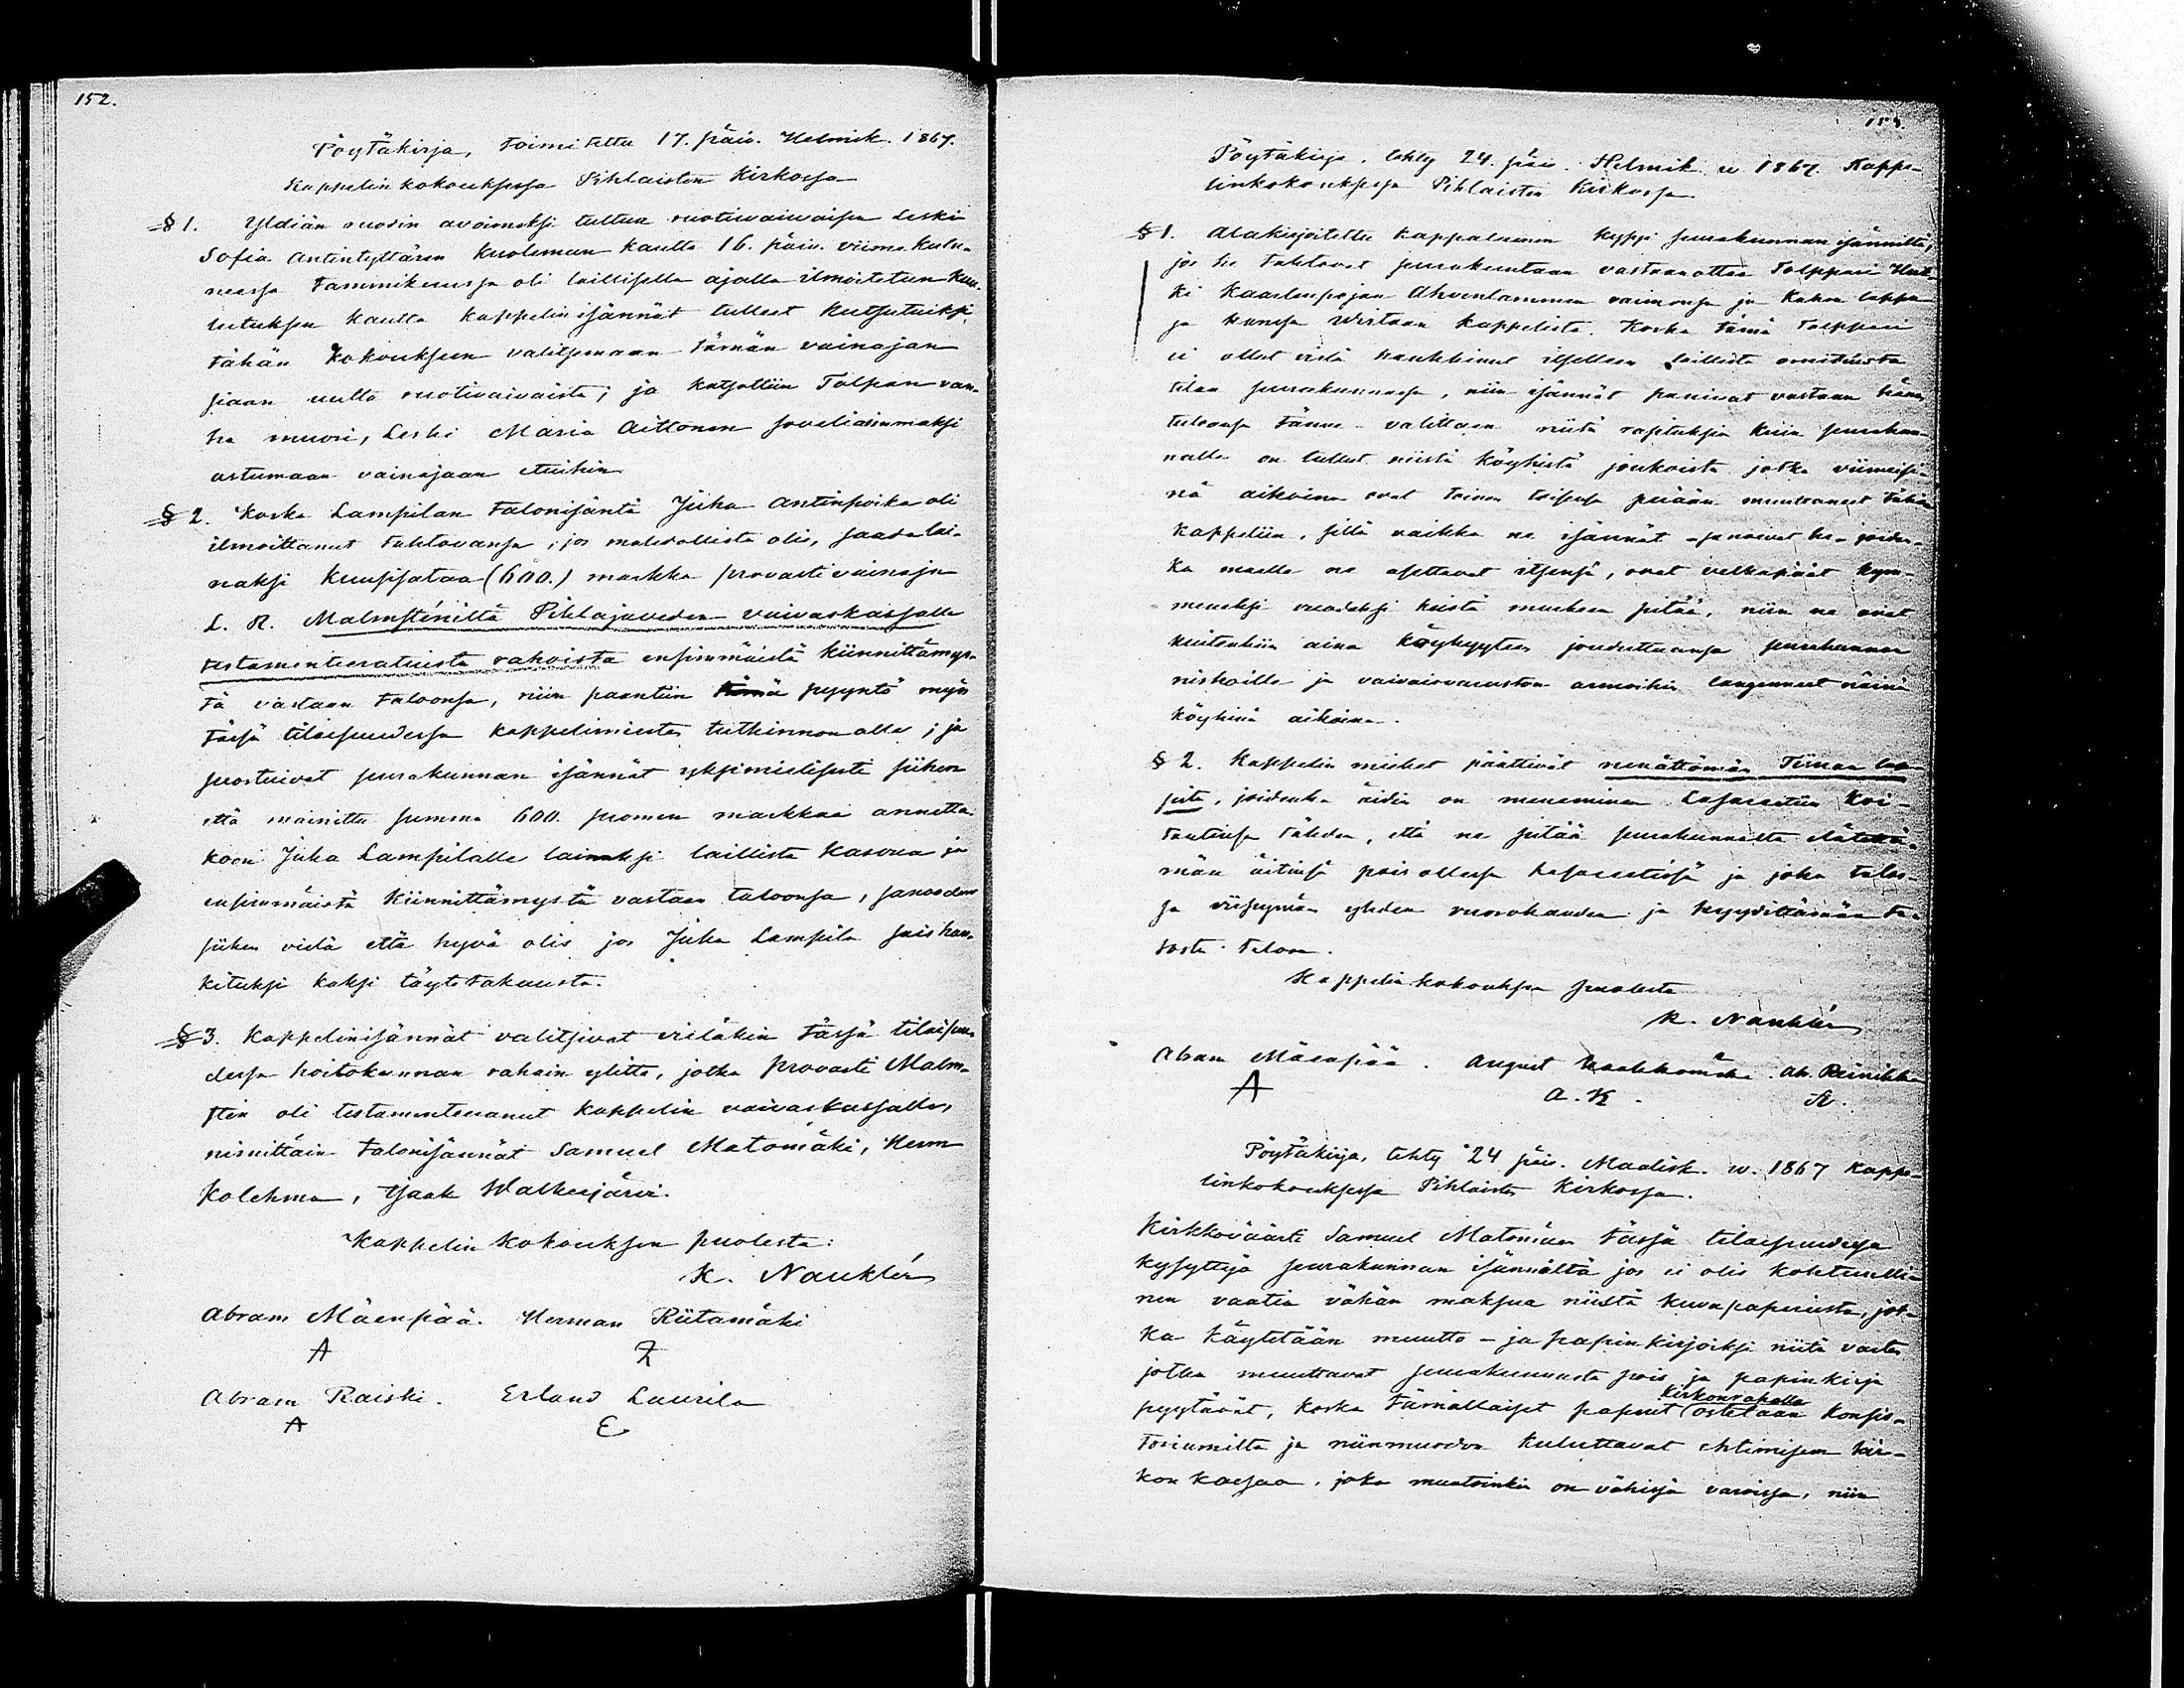 152.
Pöytäkirja, toimitettu 17. päiv. Helmik. 1867.
Kappelin kokouksessa Pihlaisten Kirkossa
§ 1. Yldiän ruodin avoimeksi tultua ruotivaivaisen Leski
Sofia Antintyttären kuoleman kautta 16. päiv. viime kulu-
neessa Tammikuussa oli laillisella ajalla ilmoitetun kuu-
lutuksen kautta kappelin isännät tulleet kutsutuiksi
tähän kokoukseen valitsemaan tämän vainajan
siaan uutta ruotivaivaista; ja katsottiin Tolpan van-
ha muori, Leski Maria Aittonen soveliaimmaksi
astumaan vainajaan etuihin
§ 2. Koska Lampilan talonisäntä Juha Antinpoika oli
ilmoittanut tahtovansa, jos mahdollista olis, saada lai-
naksi kuusisataa (600.) markka provasti vainaja
L. R. Malmsténiltä Pihlajaveden vaivaskassalle
testamenteeratuista rahoista ensimmäistä kiinnittämys-
tä vastaan taloonsa, niin pantiin tämä pyyntö myös
tässä tilaisuudessa kappelimiesten tutkinnon alle; ja
suostuivat seurakunnan isännät yksimielisesti siihen
että mainittu summa 600. suomen markkaa annetta-
koon Juha Lampilalle lainaksi laillista kasvua ja
ensimmäistä kiinnittämystä vastaan taloonsa, sanoaden
siihen vielä että hyvä olis jos Juha Lampila sais han-
kituksi kaksi täyttä takausta.
§ 3. Kappelinisännät valitsivat vieläkin tässä tilaisuu-
dessa hoitokunnan rahain ylitte, jotka Provasti Malm-
stén oli testamenteeranut kappelin vaivaskassalle,
nimittäin talonisännät Samuel Matomäki, Herm
Kolehma, Isaak Walkeejärvi.
Kappelin kokouksen puolesta:
K. Nauklér
Abram Mäenpää. Herman Riitamäki
A
Abram Raiski. Erland Laurila
A E
153.
Pöytäkirja, tehty 24. päiv. Helmik. w 1867. Kappe-
linkokouksessa Pihlaisten Kirkossa
§ 1. Allakirjoitettu kappalainen kysyi seurakunnan isänniltä,
jos he tahtovat seurakuntaan vastaanottaa Torppari
Kaarlenpojan Ahvenlammen vaimonsa ja kahen lapsen
ja kanssa Wirtain kappelista. Koska tämä Torppari
ei ollut vielä hankkinut itselleen laillista omistusta
tilaa seurakunnassa, niin isännät panivat vastaan hänen
tuloansa tänne valittaen niitä rasituksia kuin seurakun-
nalle on tullut niistä köyhistä joukoista jotka viimeisi-
nä aikoina ovat toinen toisensa perään muuttaneet tähän
kappeliin, sillä vaikka ne isännät - sanoivat he - joiden-
ka maalle ne asettavat itsensä, ovat velkapäät kym-
meneksi vuodeksi heistä murheen pitää, niin ne ovat
kuitenkiin aina köyhyyteen jouduttuansa seurakunnan
niskoille ja vaivaisvaraston armoihin langenneet näinä
köyhinä aikoina.
§ 2. Kappelin miehet päättivät nenättömän Tiinan lap-
sista, joidenka äidin on meneminen Lasarettiin koi-
tautinsa tähden, että ne pitää seurakunnalta elätettä-
män äitinsä pois ollessa lasaretissä ja joka talos-
sa viipymän yhden vuorokauden ja kyydittämän ta-
losta taloon.
Kappelin kokouksen puolesta
K. Nauklér
Abram Mäenpää. August Ab. Reinikka
A A. K.
Pöytäkirja, tehty 24 päiv. Maalisk. w. 1867 Kappe-
linkokouksessa Pihlaisten Kirkossa.
Kirkkoväärti Samuel Matomäen tässä tilaisuudessa
kysyttyä seurakunnan isänniltä jos ei olis kohtuulli-
nen vaatia vähän maksua niistä kuvapapereista, jot-
ka käytetään muutto- ja papinkirjoiksi niitä varten
jotka muuttavat seurakunnasta pois ja papinkirja
kirkonrahalla
pyytävät, koska tämällaiset paperit ostetaan Konsis-
toriumilta ja niinmuodoin kuluttavat ehtimiseen kir-
kon kassaa, joka muutoinkin on vähissä varoissa, niin